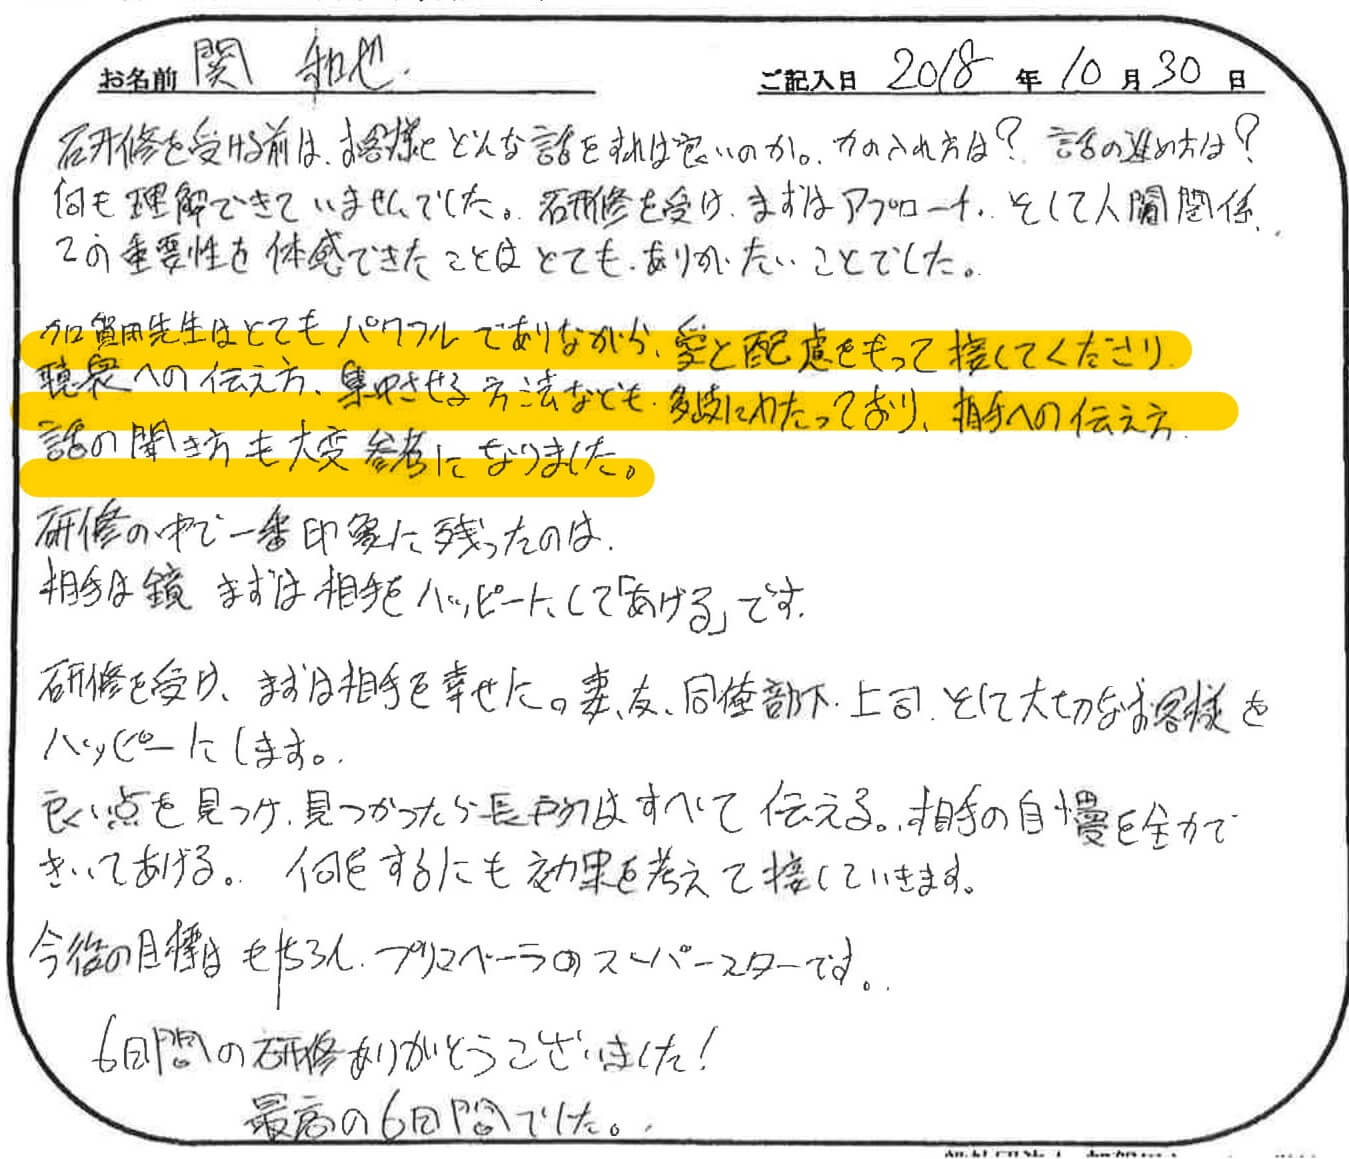 お名前 関 和也. ご記入日 2018 年 10 月 30 日
研修を受ける前は、お客様とどんな話をすれば良いのか。力の入れ方は? 話の進め方は?
何も理解できていませんでした。研修を受け、まずはアプローチ、そして人間関係、
この重要性を体感できたことはとても、ありがたいことでした。
加賀田先生はとてもパワフルでありながら、愛と配慮をもって接してくださり
聴衆への伝え方、集中させる方法なども、多岐にわたっており、相手への伝え方
話の聞き方も大変参考になりました。
研修の中で一番印象に残ったのは、
相手は鏡 まずは相手をハッピーにして「あげる」です。
研修を受け、まずは相手を幸せに。妻、友、同僚部下・上司、そして大切なお客様を
ハッピーにします。
良い点を見つけ、見つかったら長所はすべて伝える。相手の自慢を全力で
きいてあげる。何をするにも効果を考えて接していきます。
今後の目標はもちろん、プリマベーラのスーパースターです。
6日間の研修ありがとうございました!
最高の6日間でした。